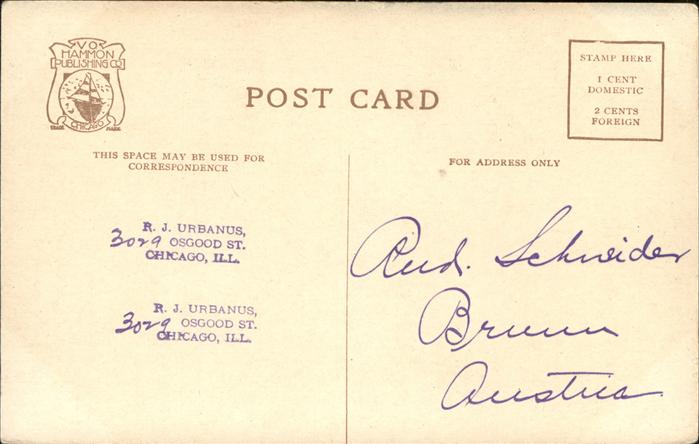 V.O.
HAMMON
PUBLISHING CO
CHICAGO
TRADE MARK
POST CARD
STAMP HERE
1 CENT
DOMESTIC
2 CENTS
FOREIGN
THIS SPACE MAY BE USED FOR
CORRESPONDENCE
FOR ADDRESS ONLY
R. J. URBANUS,
3029 OSGOOD ST.
CHICAGO, ILL.
R. J. URBANUS,
3029 OSGOOD ST.
CHICAGO, ILL.
Rud. Schneider
Brunn
Austria